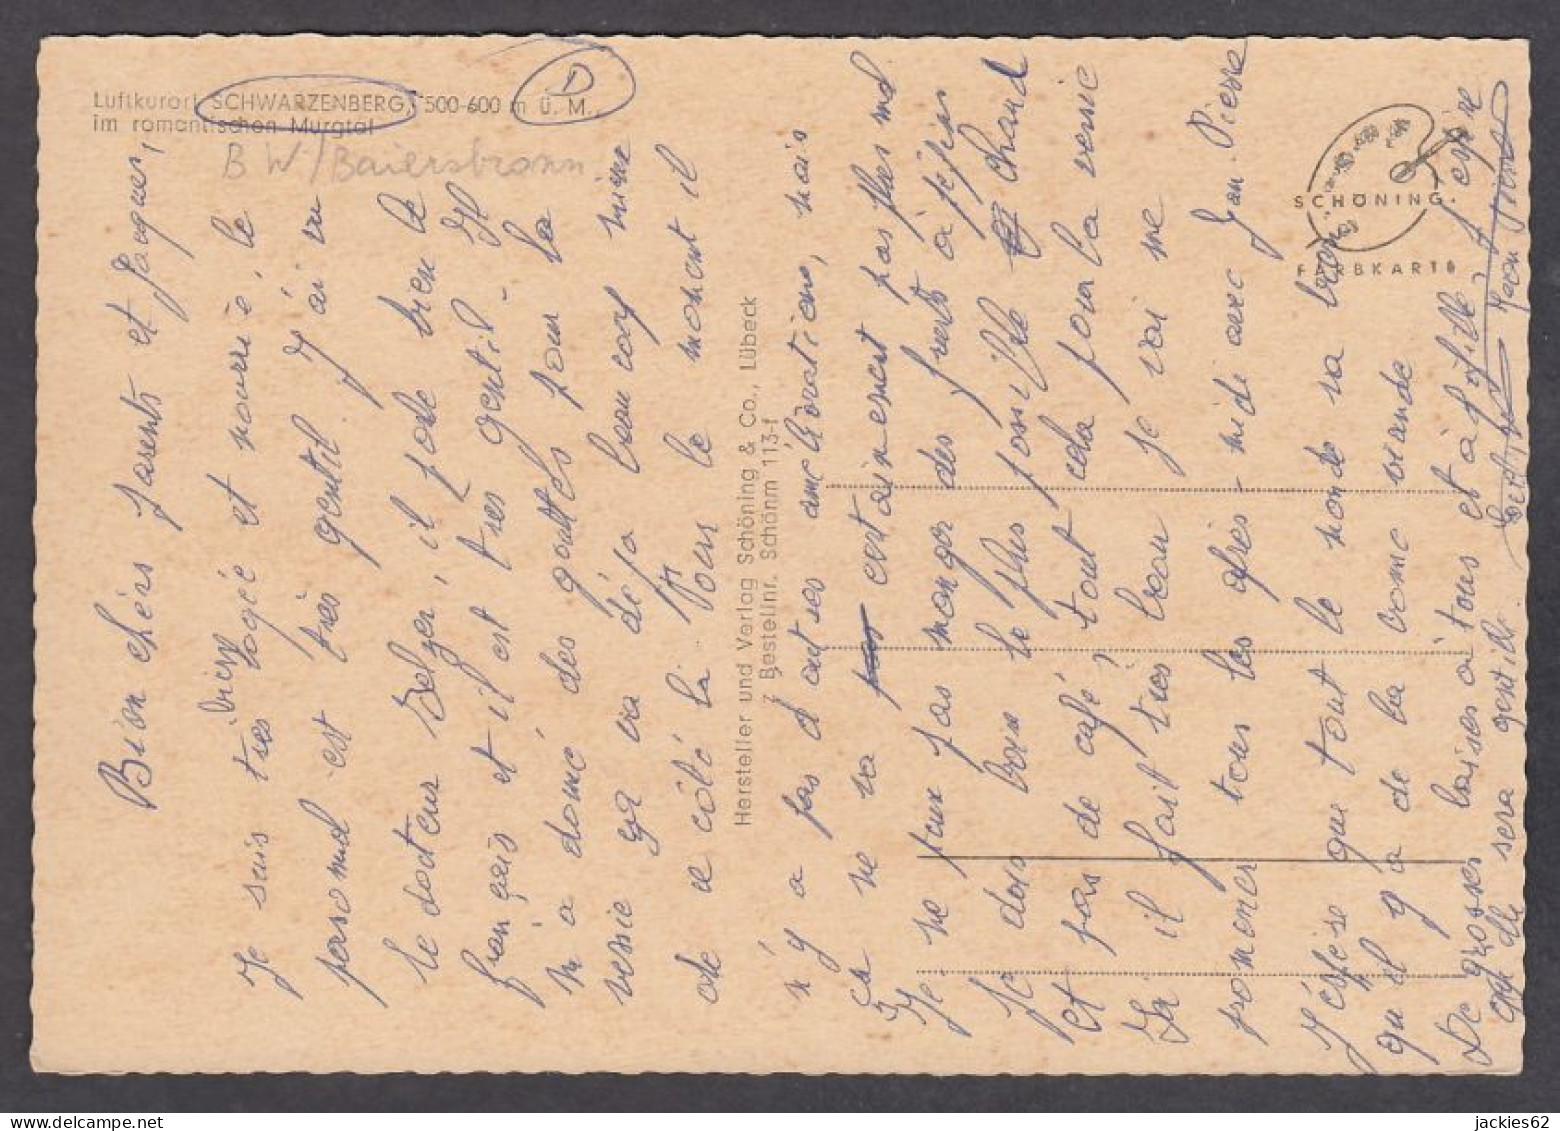 Luftkurort SCHWARZENBERG, 500-600 m ü. M.
im romantischen Murgtal
D
BW/Baiersbronn
SCHÖNING
FARBKARTE
Hersteller und Verlag Schöning & Co., Lübeck
Bestellnr. Schönm 113-f
Bien chers parents et Jacques,
Je suis très bien logée et nourrie, le
personnel est très gentil. J'ai vu
le docteur Belzer, il parle bien le
français et il est très gentil. Il
m'a donné des gouttes pour la
vessie ça va déjà beaucoup mieux
de ce côté là. Pour le moment il
n'y a pas d'autres améliorations, mais
ça ne va pas certainement pas plus mal
Je ne peux pas manger des fruits à pépins
Je dois boire le plus possible chaud
et pas de café, tout cela pour la vessie
Ici il fait très beau je vai me
promener tous les après-midi avec Jean-Pierre
J'espère que tout le monde va bien
qu'il y a de la comme viande
De grosses baises à tous et à fifille, j'espère
qu'elle sera gentille. Jean Pierre